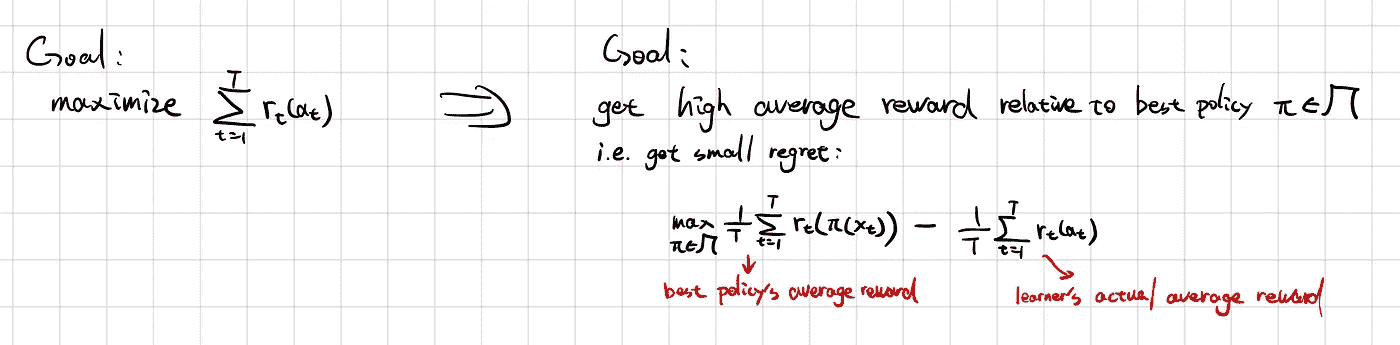 Goal:
maximize \sum_{t=1}^{T} r_t(a_t) ⇒
Goal:
get high average reward relative to best policy π∈Π
i.e. get small regret:
\max_{π∈Π} \frac{1}{T} \sum_{t=1}^{T} r_t(π(x_t)) - \frac{1}{T} \sum_{t=1}^{T} r_t(a_t)
best policy's average reward
learner's actual average reward